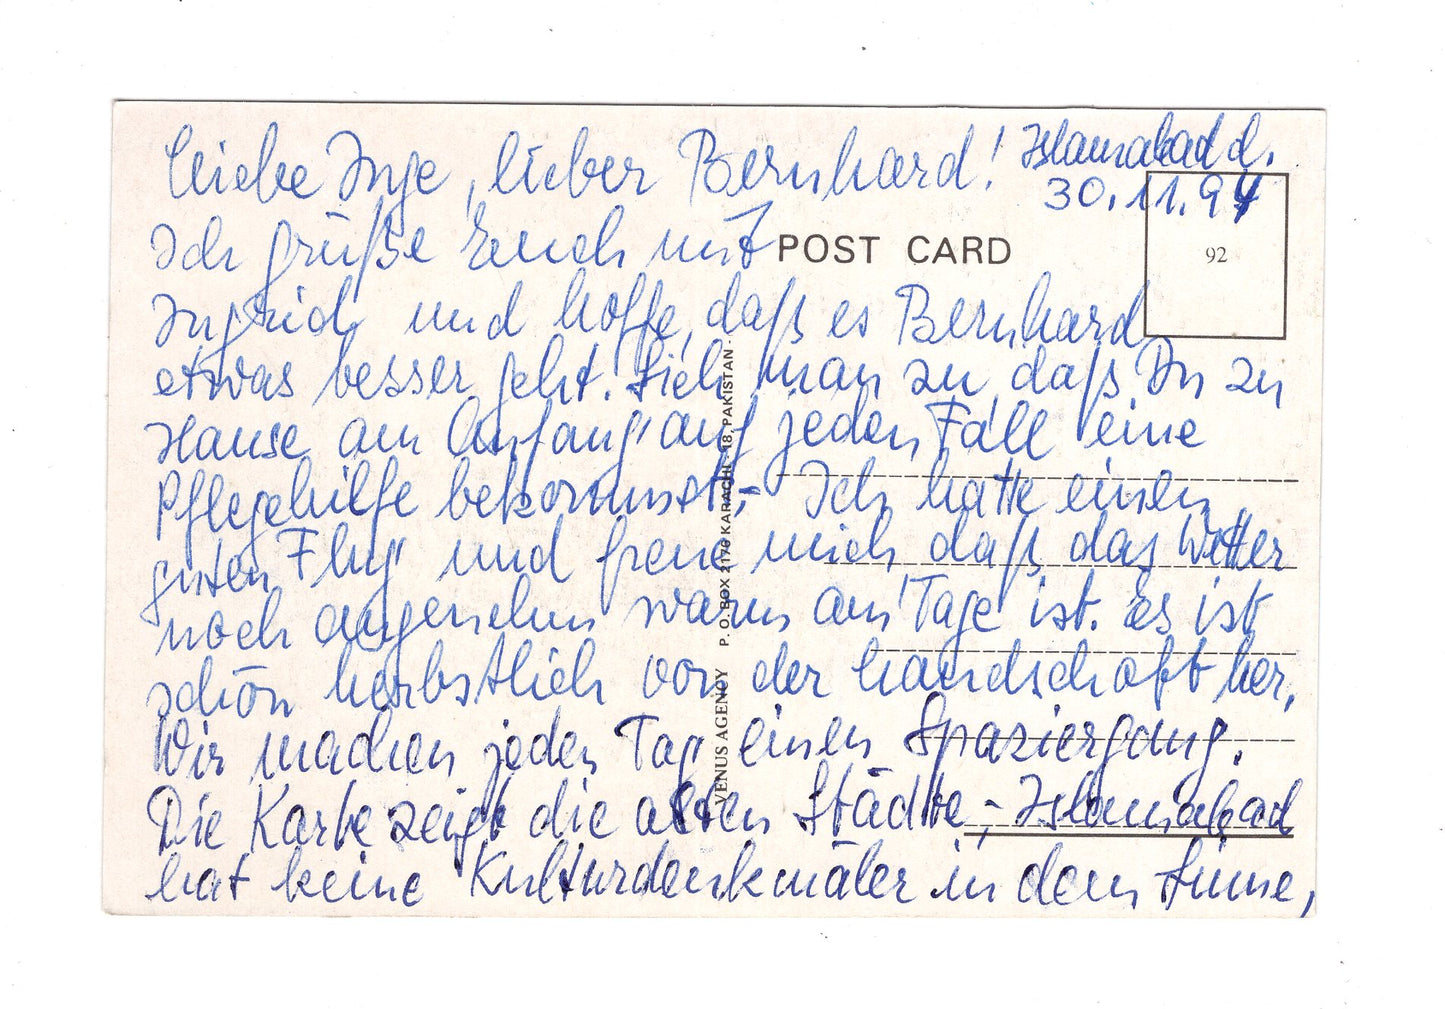 Liebe Inge, lieber Bernhard! Islamabad d.
30.11.94
Ich grüße Euch mit
POST CARD
92
Ingrid und hoffe, daß es Bernhard
etwas besser geht. Sieh man zu, daß Du zu
Hause am Anfang auf jeden Fall eine
Pflegehilfe bekommst,- Ich hatte einen
guten Flug und freue mich daß das Wetter
noch angenehm warm am Tage ist. Es ist
schön herbstlich von der Landschaft her.
Wir machen jeden Tag einen Spaziergang.
Die Karte zeigt die alten Städte, - Islamabad
hat keine Kulturdenkmäler in dem Sinne,
VENUS AGENCY P. O. BOX 2176 KARACHI - 18, PAKISTAN -